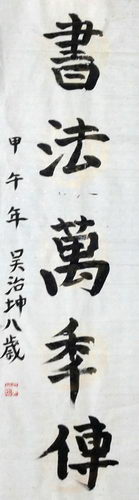 書法萬季傳
甲午年 吴治坤八歲